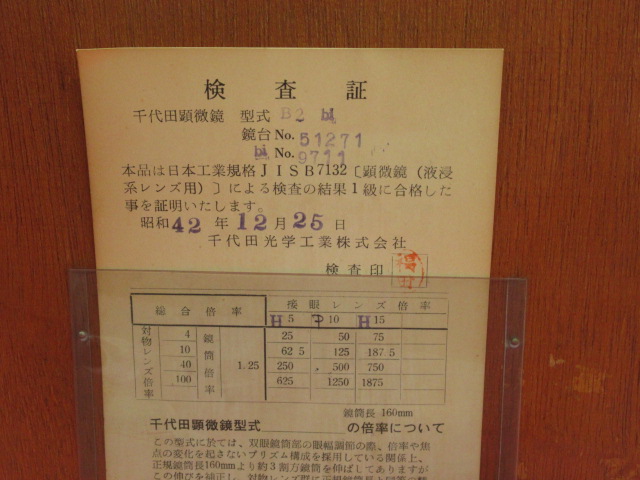 検査証
千代田顕微鏡 型式 B2 bi
鏡台 No. 51271
bi No. 9711
本品は日本工業規格JISB7132〔顕微鏡(液浸
系レンズ用)〕による検査の結果1級に合格した
事を証明いたします。
昭和42年12月25日
千代田光学工業株式会社
検査印
総合倍率 接眼レンズ倍率
H 5 P 10 H 15
対物レンズ倍率 鏡筒倍率 1.25
4 25 50 75
10 62 5 125 187 5
40 250 500 750
100 625 1250 1875
鏡筒長 160mm
千代田顕微鏡型式 の倍率について
この型式に於ては、双眼鏡筒部の眼幅調節の際、倍率や焦
点の変化を起さないプリズム構成を採用している関係上、
正規鏡筒長160mmより約3割方鏡筒を伸ばしてありますが